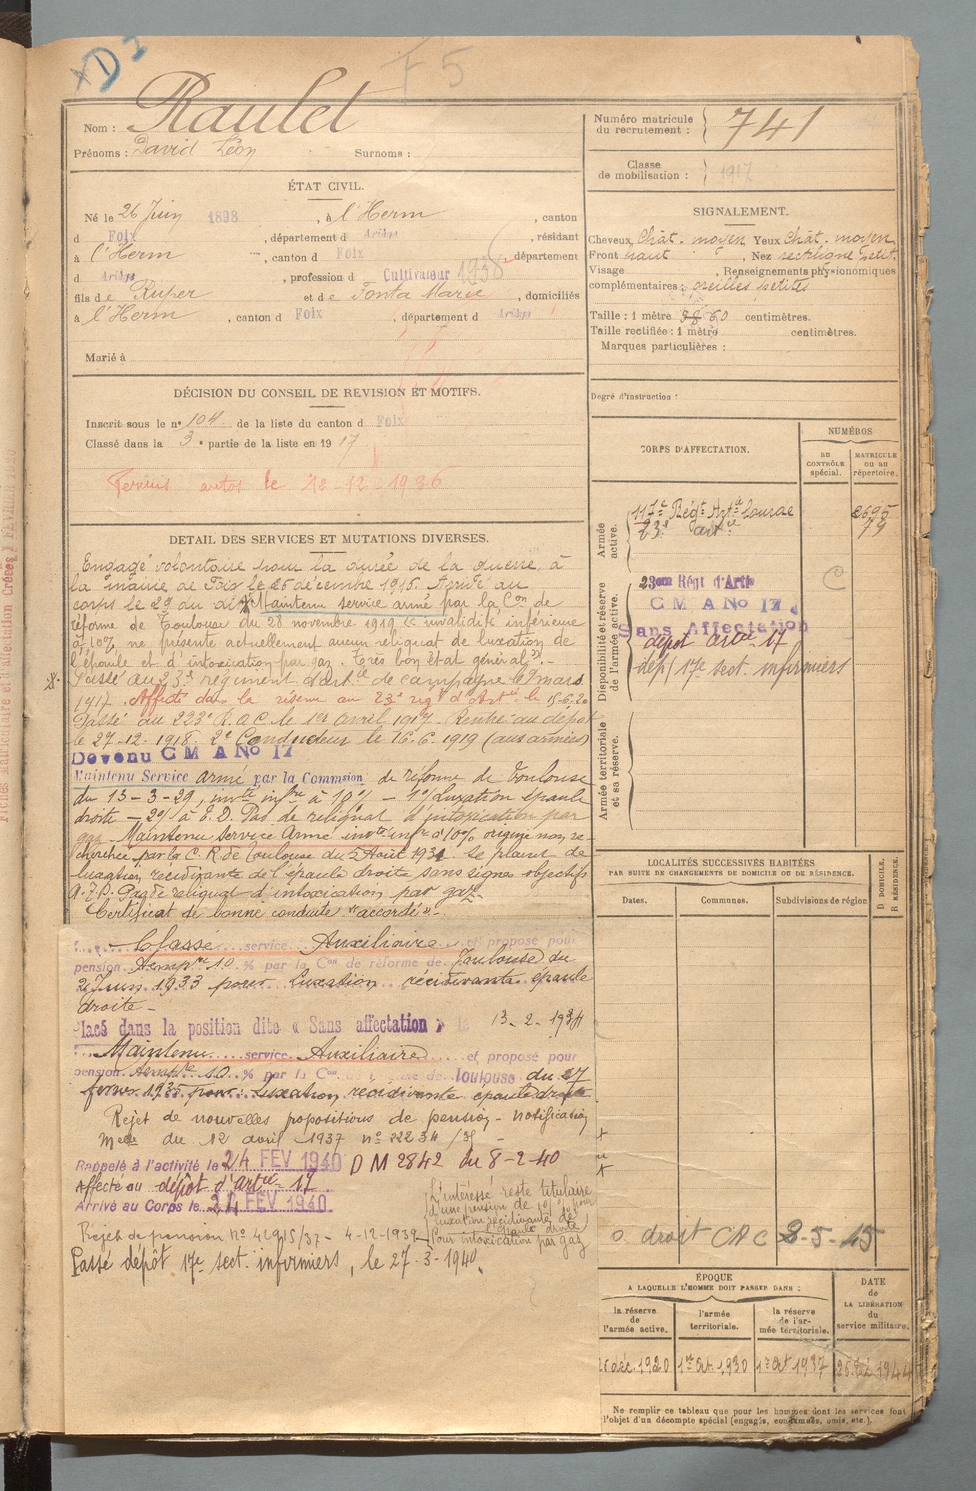 XD2
F5
Nom : Raulet
Prénoms : David Léon Surnoms :
Numéro matricule
du recrutement : 741
Classe
de mobilisation : 1917
ÉTAT CIVIL.
Né le 26 Juin 1898, à l'Herm, canton
d Foix, département d Ariège, résidant
à l'Herm, canton d Foix, département
d Ariège, profession d Cultivateur 1936
fils de Ruper et de Fonta Marie, domiciliés
à l'Herm, canton d Foix, département d Ariège
Marié à
SIGNALEMENT.
Cheveux Chât. moyen Yeux Chât. moyen
Front haut, Nez rectiligne petit.
Visage, Renseignements physionomiques
complémentaires : oreilles petites
Taille : 1 mètre 60 centimètres.
Taille rectifiée : 1 mètre centimètres.
Marques particulières :
Degré d'instruction :
DÉCISION DU CONSEIL DE REVISION ET MOTIFS.
Inscrit sous le n° 104 de la liste du canton d Foix
Classé dans la 3e partie de la liste en 1917
le 12-12-1936
DETAIL DES SERVICES ET MUTATIONS DIVERSES.
Engagé volontaire pour la durée de la guerre à
la mairie de Foix le 26 décembre 1916. Arrivé au
corps le 29 du dit Maintenu service armé par la Con de
réforme de Toulouse du 28 novembre 1919 "invalidité inférieure
à 10% ne présente actuellement aucun reliquat de luxation de
l'épaule et d'intoxication par gaz. Très bon état général".-
Passé au 23e régiment d'artie de campagne le 9 mars
1917. Affecté dans la réserve au 23e régt d'Artie le 15-6-20
Passé au 223e R.A.C. le 1er avril 1917. Rentré au dépôt
le 27-12-1918. 2e Conducteur le 16-6-1919 (aux armées)
Devenu C M A No 17
Maintenu Service armé par la Commsion de réforme de Toulouse
du 13-3-29, invté infre à 10% - 1°) Luxation épaule
droite - 2°) à E.D. Pas de reliquat d'intoxication par
gaz - Maintenu service Armé invté infre à 10% origine non re-
cherchée par la C.R. de Toulouse du 5 Août 1931. Se plaint de
luxation récidivante de l'épaule droite sans signes objectifs
Pas de reliquat d'intoxication par gaz-
Certificat de bonne conduite "accordé"-
Classé service Auxiliaire et proposé pour
pension tempre 10 % par la Con de réforme de Toulouse du
2 Juin 1933 pour Luxation récidivante épaule
droite -
Placé dans la position dite « Sans affectation » le 13-2-1934
Maintenu service Auxiliaire et proposé pour
pension tempre 10 % par la Con de réforme de Toulouse du 27
février 1935 pour : Luxation récidivante épaule droite
Rejet de nouvelles propositions de pension - notification
Melle du 12 avril 1937 n° 2234 / -
Rappelé à l'activité le 24 FEV 1940 D M 2842 du 8-2-40
Affecté au dépôt d'artie 17
Arrivé au Corps le 24 FEV 1940
Rejet de pension N° /37 - 4-12-1939
L'intéressé reste titulaire
d'une pension de 10% pour
luxation récidivante de
l'épaule droite
pour intoxication par gaz
Passé dépôt 17e sect. infirmiers, le 27-3-1940.
CORPS D'AFFECTATION.
NUMÉROS
AU CONTRÔLE spécial.
MATRICULE ou au répertoire.
Armée active.
117e Régt Artie Lourde 2695
23e artie 79
Disponibilité et réserve de l'armée active.
23eme Régt d'Artie C
C M A No 17
Sans Affectation
dépôt artie 17
dép/ 17e sect. infirmiers
Armée territoriale et sa réserve.
LOCALITÉS SUCCESSIVES HABITÉES
PAR SUITE DE CHANGEMENTS DE DOMICILE OU DE RÉSIDENCE.
Dates. Communes. Subdivisions de région D DOMICILE. R RÉSIDENCE.
droit CAC 2-5-45
ÉPOQUE
A LAQUELLE L'HOMME DOIT PASSER DANS :
la réserve de l'armée active. l'armée territoriale. la réserve de l'armée territoriale.
DATE de LA LIBÉRATION du service militaire.
26 déc. 1920 1er Oct. 1930 1er Oct 1937 1944
Ne remplir ce tableau que pour les hommes dont les services font
l'objet d'un décompte spécial (engagés, condamnés, omis, etc.).